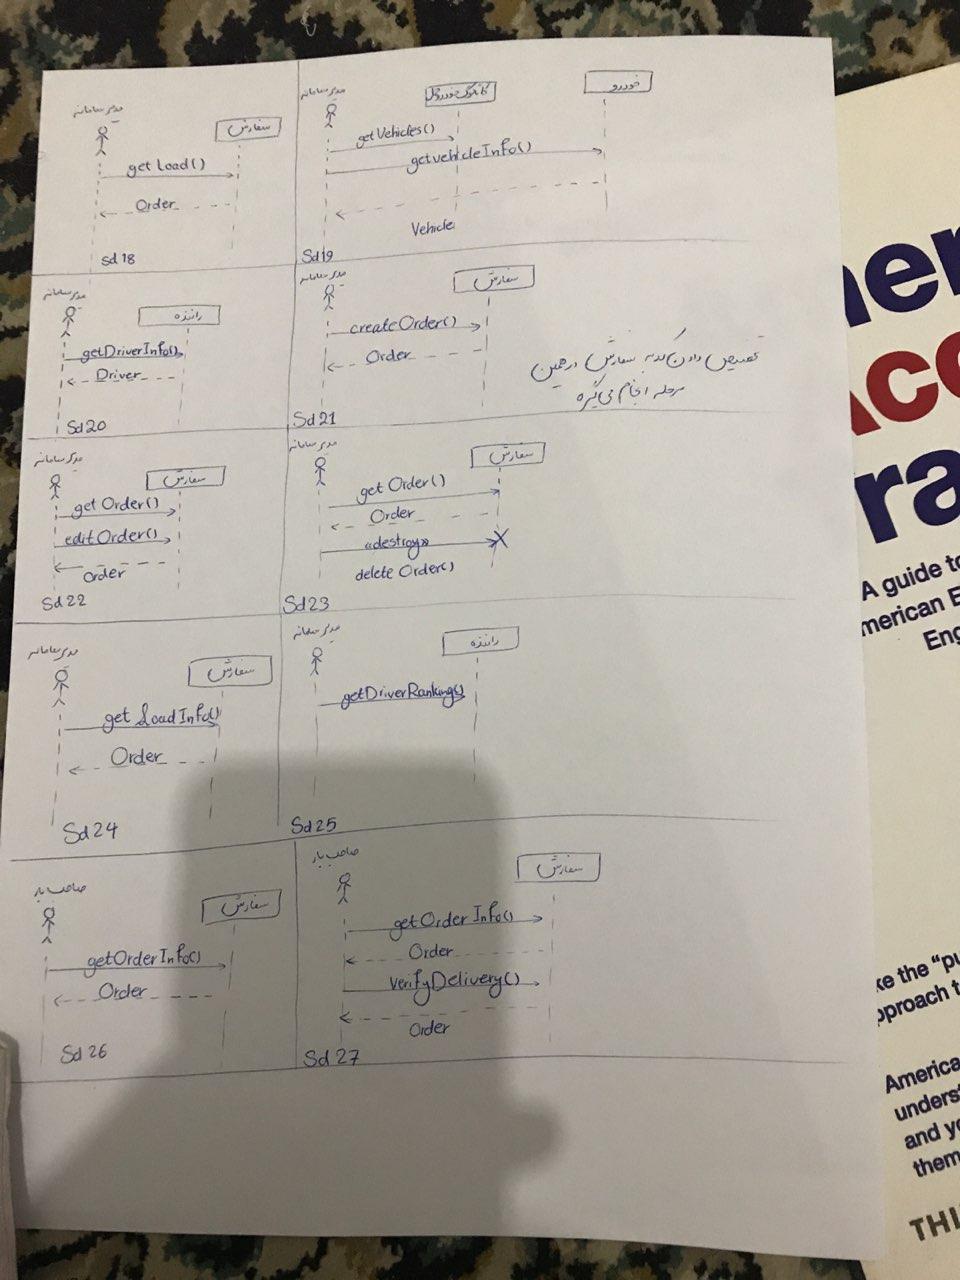 مدیر سامانه
سفارش
getLoad()
Order
Sd18
مدیر سامانه
کاتالوگ خودروها
خودرو
getVehicles()
getvehicleInfo()
Vehicle
Sd19
مدیر سامانه
راننده
getDriverInfo()
Driver
Sd20
مدیر سامانه
سفارش
createOrder()
Order
تخصیص دادن کد به سفارش در همین
مرحله انجام می‌گیره
Sd21
مدیر سامانه
سفارش
getOrder()
editOrder()
Order
Sd22
مدیر سامانه
سفارش
getOrder()
Order
«destroy»
deleteOrder()
Sd23
مدیر سامانه
سفارش
getLoadInfo()
Order
Sd24
مدیر سامانه
راننده
getDriverRanking()
Sd25
صاحب بار
سفارش
getOrderInfo()
Order
Sd26
صاحب بار
سفارش
getOrderInfo()
Order
verifyDelivery()
Order
Sd27
A guide to
merican E
Eng
ke the “pu
pproach t
America
unders
and yo
them
THI